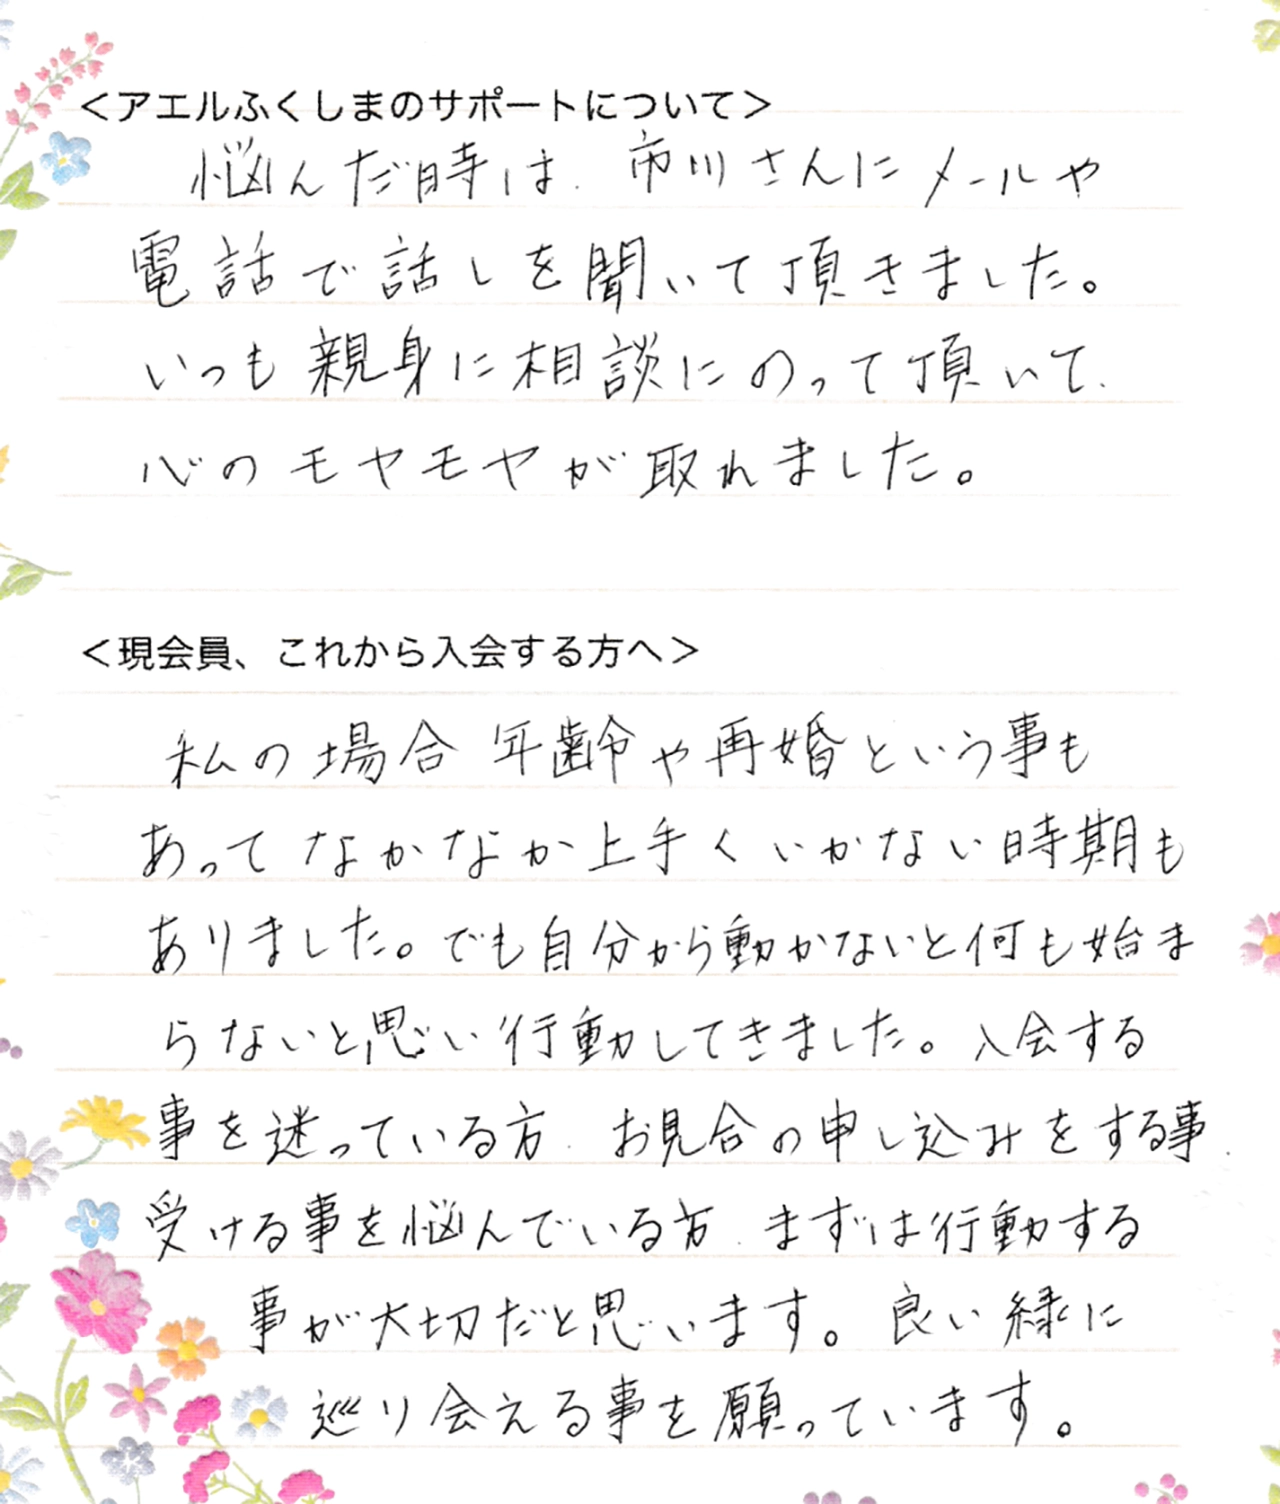 ＜アエルふくしまのサポートについて＞
悩んだ時は、市川さんにメールや
電話で話しを聞いて頂きました。
いつも親身に相談にのって頂いて、
心のモヤモヤが取れました。
＜現会員、これから入会する方へ＞
私の場合 年齢や再婚という事も
あってなかなか上手くいかない時期も
ありました。でも自分から動かないと何も始ま
らないと思い行動してきました。入会する
事を迷っている方、お見合の申し込みをする事、
受ける事を悩んでいる方、まずは行動する
事が大切だと思います。良い縁に
巡り会える事を願っています。